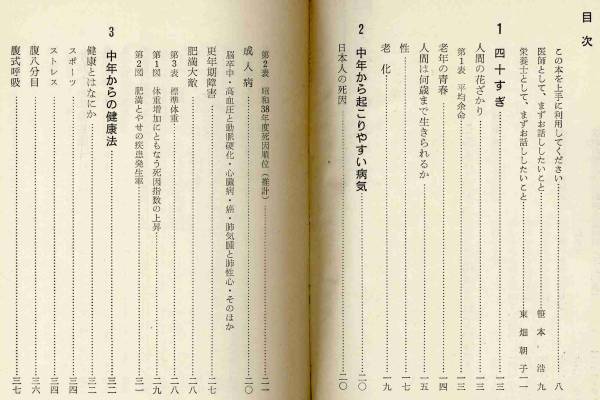 目次
この本を上手に利用してください……八
医師として、まずお話ししたいこと……笹本浩 九
栄養士として、まずお話ししたいこと……東畑朝子 一一
1 四十すぎ……一三
人間の花ざかり……一三
第1表 平均余命……一三
老年の青春……一四
人間は何歳まで生きられるか……一五
性……一七
老化……一九
2 中年から起こりやすい病気……二〇
日本人の死因……二〇
第2表 昭和38年度死因順位(推計)……二一
成人病……二〇
脳卒中・高血圧と動脈硬化・心臓病・癌・肺気腫と肺性心・そのほか
更年期障害……二七
肥満大敵……二八
第3表 標準体重……二八
第1図 体重増加にともなう死因指数の上昇……二九
第2図 肥満とやせの疾患発生率……三一
3 中年からの健康法……三二
健康とはなにか……三二
スポーツ……三四
ストレス……三四
腹八分目……三六
腹式呼吸……三七